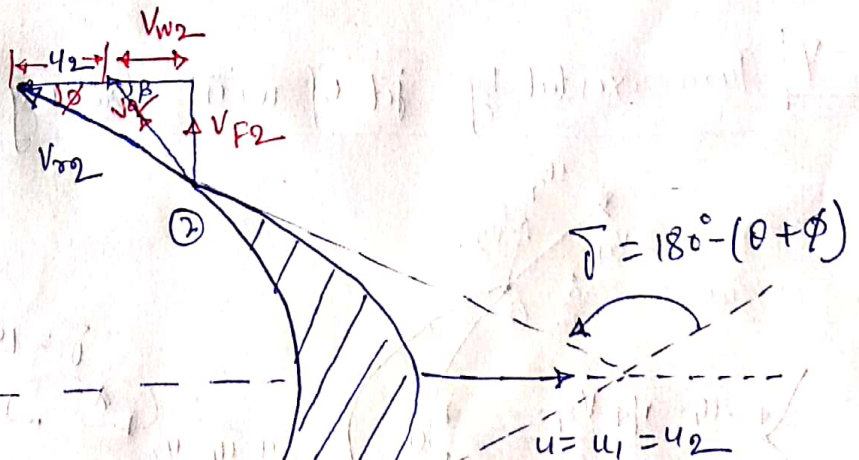 V_w2
u_2
φ β
V_2
V_F2
V_r2
②
δ = 180° - (θ + φ)
u = u_1 = u_2